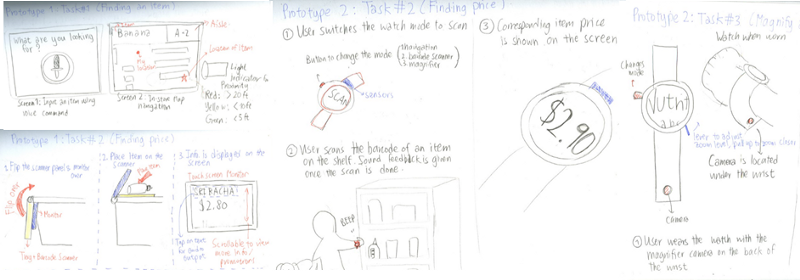 Prototype 1: Task#1 (Finding an item)
What are you looking
for?
Screen 1: Input an item using
voice command
Banana
A-2
Screen 2: In store Map
navigation
Aisle
Location of item
Light
Indicator to
Proximity
Red: > 20ft
Yellow: < 10ft
Green: < 5ft
Prototype 1: Task#2 (Finding price)
1. Flip the scanner panel & monitor
over
Flip over
Monitor
Tray + Barcode Scanner
2. Place Item on the
scanner
3. Info is displayed on the
screen
Touch screen Monitor
SRIRACHA!
$2.80
Tap on text
for audio
output
Scrollable to view
more info/
promotions
Prototype 2: Task #2 (Finding price)
① User switches the watch mode to scan
Button to change the mode
1. navigation
2. barcode scanner
3. magnifier
SCAN
sensors
② User scans the barcode of an item
on the shelf. Sound feedback is given
once the scan is done.
BEEP
③ Corresponding item price
is shown on the screen
$2.90
Prototype 2: Task #3 (Magnify
Watch when worn
Changes
mode
Nutri
lever to adjust
zoom level, pull up to zoom closer
Camera is located
under the wrist
Camera
① User wears the watch with the
magnifier camera on the back of
the wrist